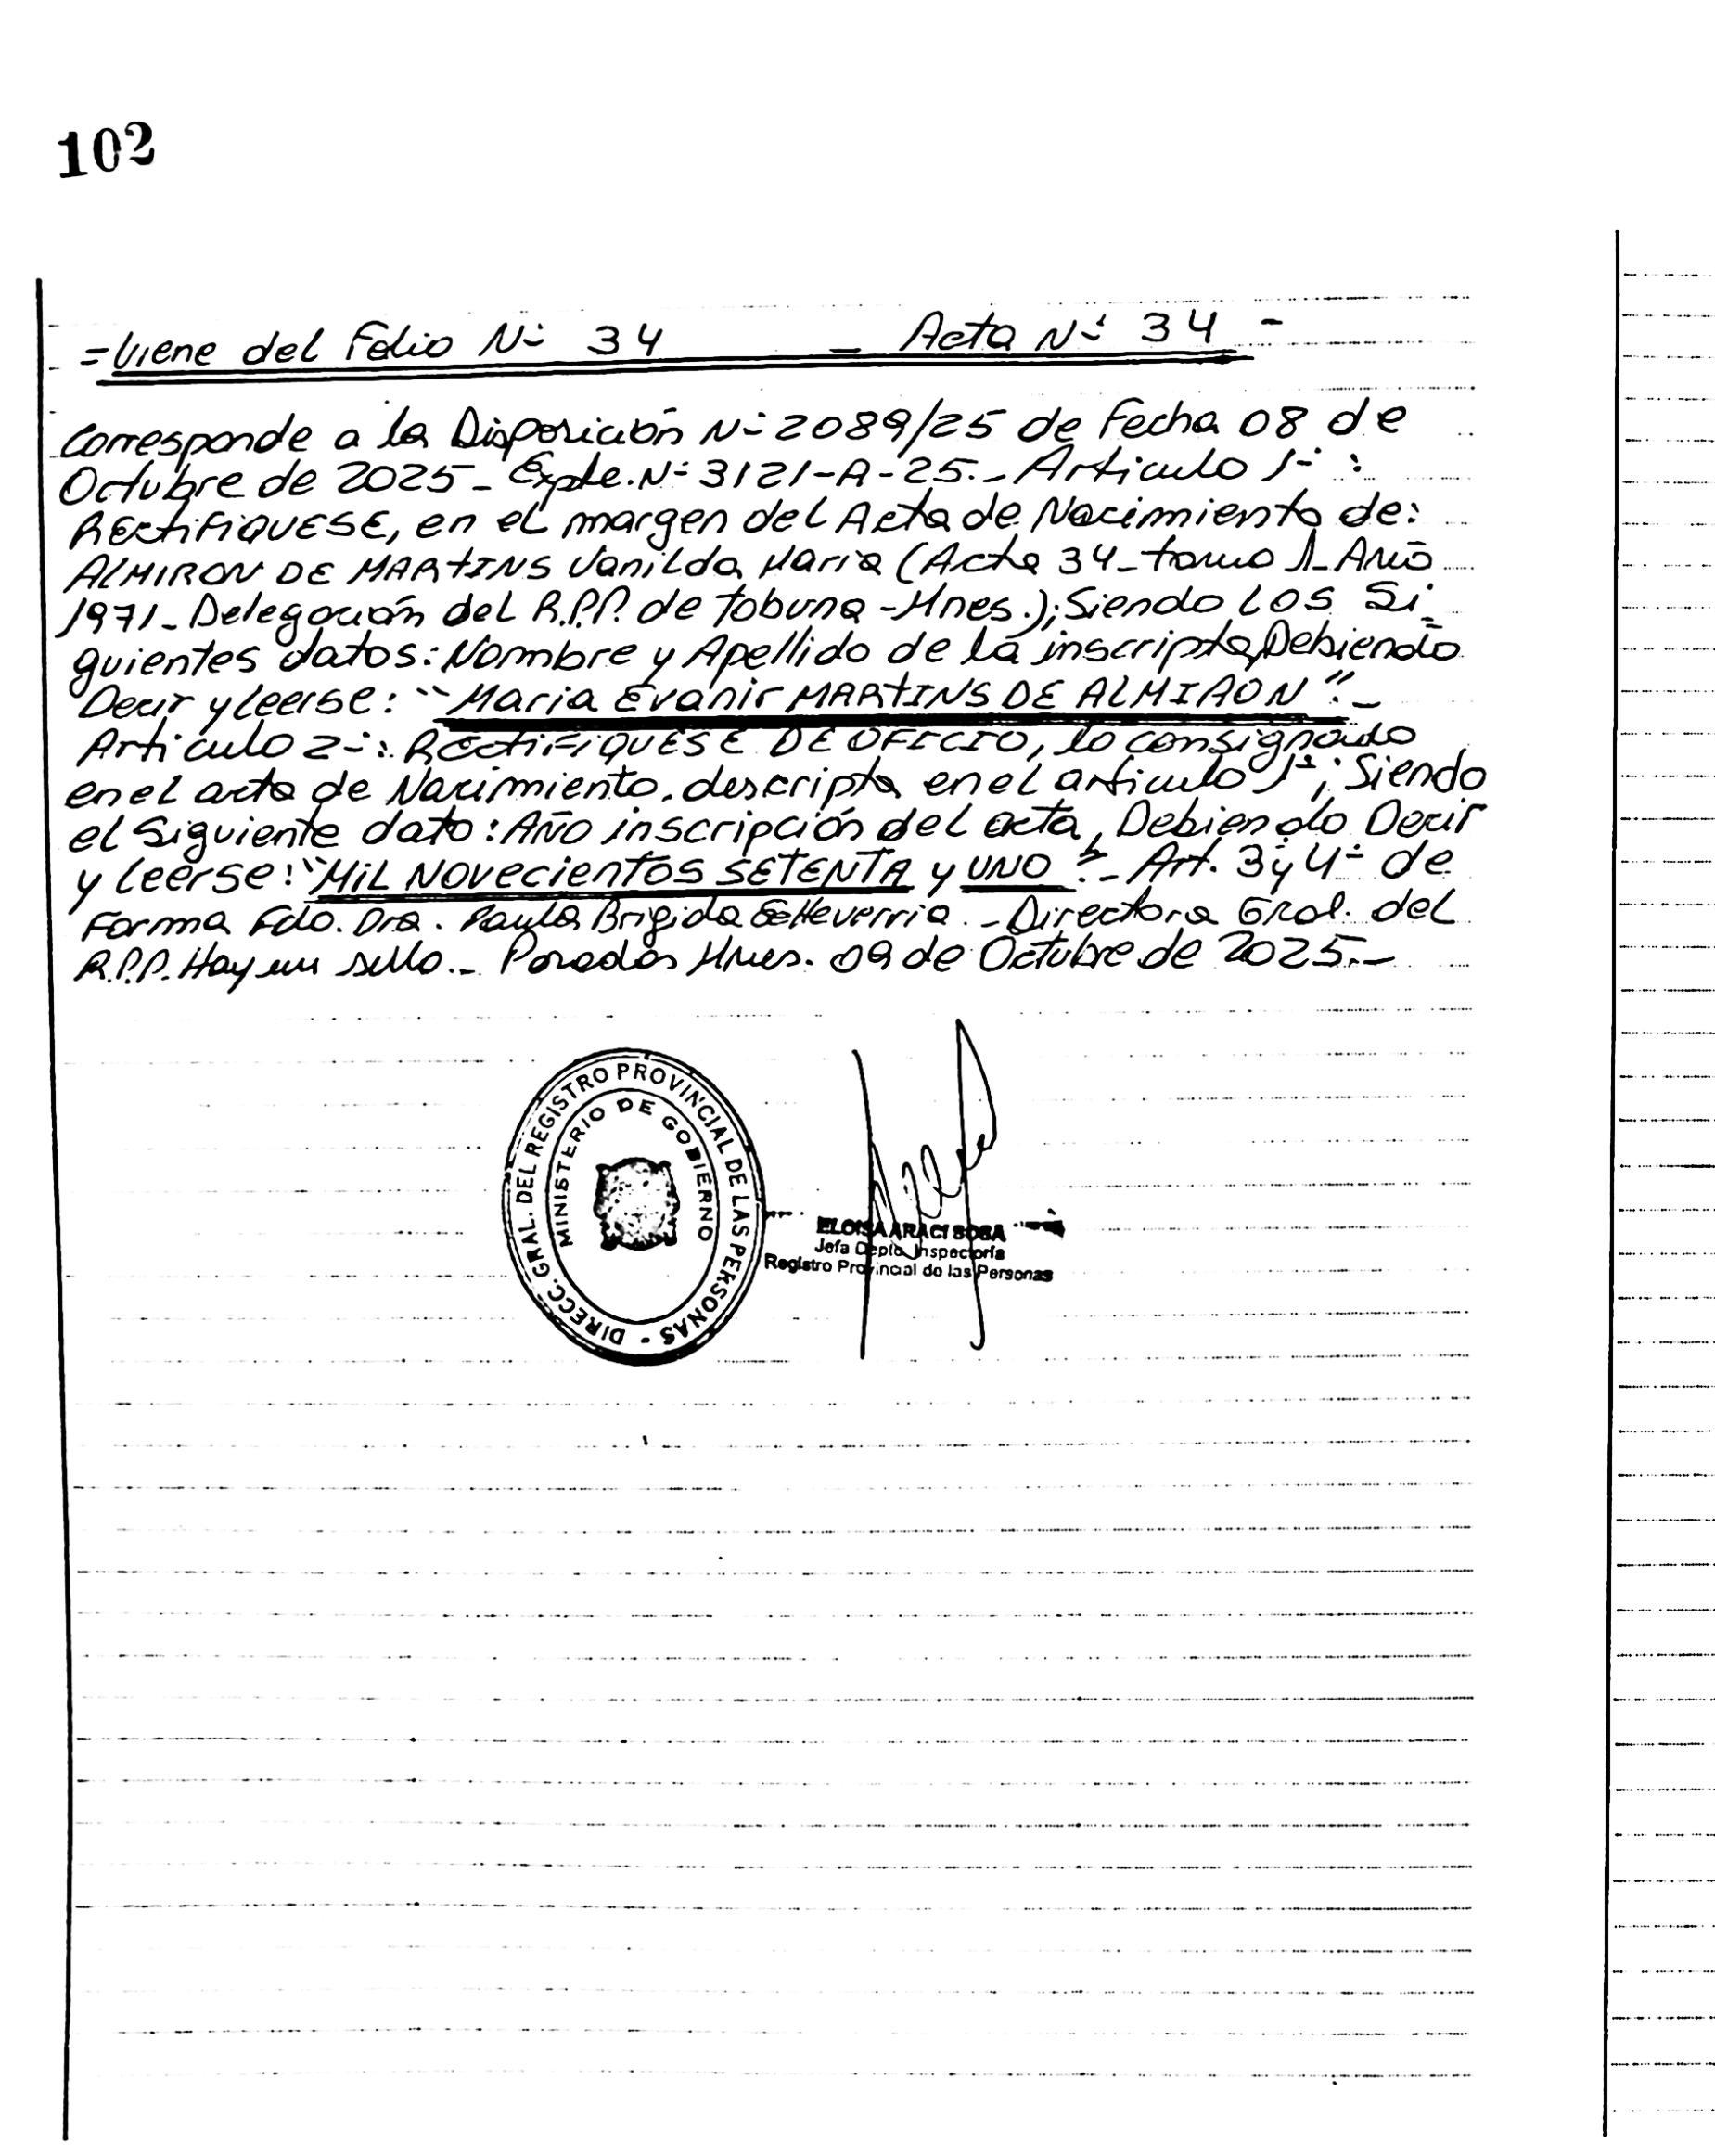 102
=Viene del Folio Nº 34 _ Acta Nº 34 -
Corresponde a la Disposición Nº 2089/25 de Fecha 08 de
Octubre de 2025_ Expte. Nº 3121-A-25._ Articulo 1º :
RECtiFiQUESE, en el margen del Acta de Nacimiento de:
ALMIRON DE MARTINS Vanilda Maria (Acta 34_ tomo 1_ Año
1971_ Delegación del R.P.P. de Tobuna -Mnes.); Siendo los Si_
guientes datos: Nombre y Apellido de la inscripta, Debiendo
Decir y leerse: "Maria Evanir MARTINS DE ALMIRON"._
Articulo 2º: RECtiFiQUESE DE OFICIO, lo consignado
en el acta de Nacimiento, descripta en el articulo 1º; Siendo
el Siguiente dato: AÑO inscripción del acta, Debiendo Decir
y leerse: "MiL NOVecientos SETENTA y UNO"._ Art. 3º y 4º de
Forma Fdo. Dra. Paula Brigida Etcheverria._ Directora Gral. del
R.P.P. Hay un sello._ Posadas Mnes. 09 de Octubre de 2025._
DIRECC. GRAL. DEL REGISTRO PROVINCIAL DE LAS PERSONAS -
MINISTERIO DE GOBIERNO
ELOISA ARACI SOSA
Jefa Depto. Inspectoría
Registro Provincial de las Personas